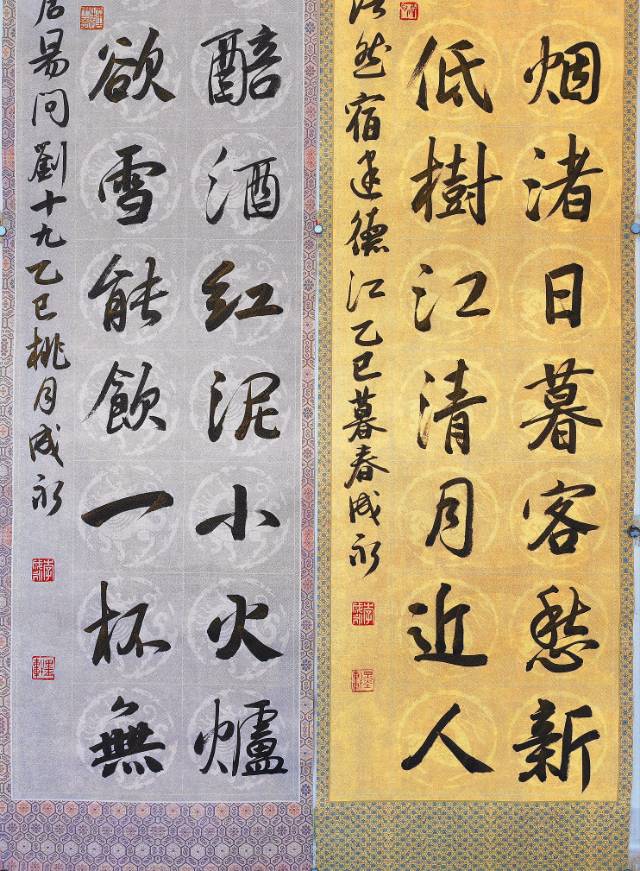 烟渚日暮客愁新
低樹江清月近人
然宿建德江乙巳暮春成
醅酒红泥小火爐
欲雪能飲一杯無
居易问劉十九乙巳桃月成